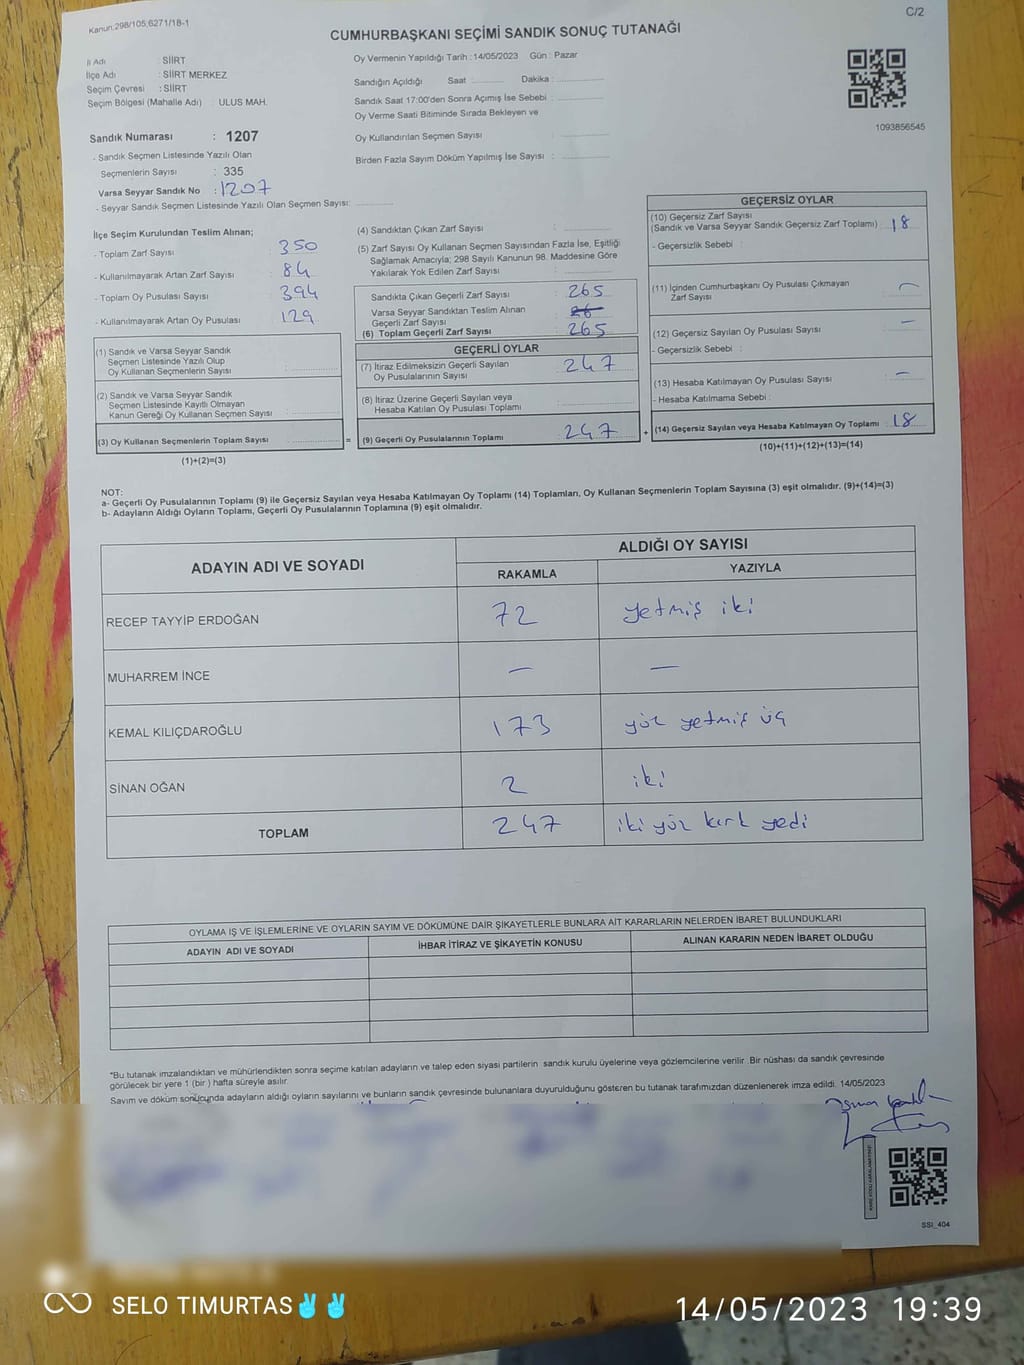 Kanun:298/105;6271/18-1
C/2
CUMHURBAŞKANI SEÇİMİ SANDIK SONUÇ TUTANAĞI
İl Adı : SİİRT
İlçe Adı : SİİRT MERKEZ
Seçim Çevresi : SİİRT
Seçim Bölgesi (Mahalle Adı) : ULUS MAH.
Sandık Numarası : 1207
- Sandık Seçmen Listesinde Yazılı Olan
Seçmenlerin Sayısı : 335
Varsa Seyyar Sandık No : 1207
- Seyyar Sandık Seçmen Listesinde Yazılı Olan Seçmen Sayısı:
Oy Vermenin Yapıldığı Tarih : 14/05/2023 Gün : Pazar
Sandığın Açıldığı Saat : Dakika :
Sandık Saat 17:00'den Sonra Açımış İse Sebebi :
Oy Verme Saati Bitiminde Sırada Bekleyen ve
Oy Kullandırılan Seçmen Sayısı :
Birden Fazla Sayım Döküm Yapılmış İse Sayısı :
1093856545
İlçe Seçim Kurulundan Teslim Alınan;
- Toplam Zarf Sayısı : 350
- Kullanılmayarak Artan Zarf Sayısı : 84
- Toplam Oy Pusulası Sayısı : 394
- Kullanılmayarak Artan Oy Pusulası : 129
(1) Sandık ve Varsa Seyyar Sandık
Seçmen Listesinde Yazılı Olup
Oy Kullanan Seçmenlerin Sayısı :
(2) Sandık ve Varsa Seyyar Sandık
Seçmen Listesinde Kayıtlı Olmayan
Kanun Gereği Oy Kullanan Seçmen Sayısı :
(3) Oy Kullanan Seçmenlerin Toplam Sayısı :
(1)+(2)=(3)
=
(4) Sandıktan Çıkan Zarf Sayısı :
(5) Zarf Sayısı Oy Kullanan Seçmen Sayısından Fazla İse, Eşitliği
Sağlamak Amacıyla; 298 Sayılı Kanunun 98. Maddesine Göre
Yakılarak Yok Edilen Zarf Sayısı :
Sandıkta Çıkan Geçerli Zarf Sayısı : 265
Varsa Seyyar Sandıktan Teslim Alınan
Geçerli Zarf Sayısı :
(6) Toplam Geçerli Zarf Sayısı : 265
GEÇERLİ OYLAR
(7) İtiraz Edilmeksizin Geçerli Sayılan
Oy Pusulalarının Sayısı : 247
(8) İtiraz Üzerine Geçerli Sayılan veya
Hesaba Katılan Oy Pusulası Toplamı :
(9) Geçerli Oy Pusulalarının Toplamı : 247
+
GEÇERSİZ OYLAR
(10) Geçersiz Zarf Sayısı
(Sandık ve Varsa Seyyar Sandık Geçersiz Zarf Toplamı) : 18
- Geçersizlik Sebebi :
(11) İçinden Cumhurbaşkanı Oy Pusulası Çıkmayan
Zarf Sayısı : —
(12) Geçersiz Sayılan Oy Pusulası Sayısı : —
- Geçersizlik Sebebi :
(13) Hesaba Katılmayan Oy Pusulası Sayısı : —
- Hesaba Katılmama Sebebi :
(14) Geçersiz Sayılan veya Hesaba Katılmayan Oy Toplamı : 18
(10)+(11)+(12)+(13)=(14)
NOT:
a- Geçerli Oy Pusulalarının Toplamı (9) ile Geçersiz Sayılan veya Hesaba Katılmayan Oy Toplamı (14) Toplamları, Oy Kullanan Seçmenlerin Toplam Sayısına (3) eşit olmalıdır. (9)+(14)=(3)
b- Adayların Aldığı Oyların Toplamı, Geçerli Oy Pusulalarının Toplamına (9) eşit olmalıdır.
ADAYIN ADI VE SOYADI
ALDIĞI OY SAYISI
RAKAMLA YAZIYLA
RECEP TAYYİP ERDOĞAN 72 yetmiş iki
MUHARREM İNCE — —
KEMAL KILIÇDAROĞLU 173 yüz yetmiş üç
SİNAN OĞAN 2 iki
TOPLAM 247 iki yüz kırk yedi
OYLAMA İŞ VE İŞLEMLERİNE VE OYLARIN SAYIM VE DÖKÜMÜNE DAİR ŞİKAYETLERLE BUNLARA AİT KARARLARIN NELERDEN İBARET BULUNDUKLARI
ADAYIN ADI VE SOYADI İHBAR İTİRAZ VE ŞİKAYETİN KONUSU ALINAN KARARIN NEDEN İBARET OLDUĞU
*Bu tutanak imzalandıktan ve mühürlendikten sonra seçime katılan adayların ve talep eden siyasi partilerin sandık kurulu üyelerine veya gözlemcilerine verilir. Bir nüshası da sandık çevresinde
görülecek bir yere 1 (bir ) hafta süreyle asılır.
Sayım ve döküm sonucunda adayların aldığı oyların sayılarını ve bunların sandık çevresinde bulunanlara duyurulduğunu gösteren bu tutanak tarafımızdan düzenlenerek imza edildi. 14/05/2023
SSI_404
SELO TIMURTAS✌✌
14/05/2023 19:39